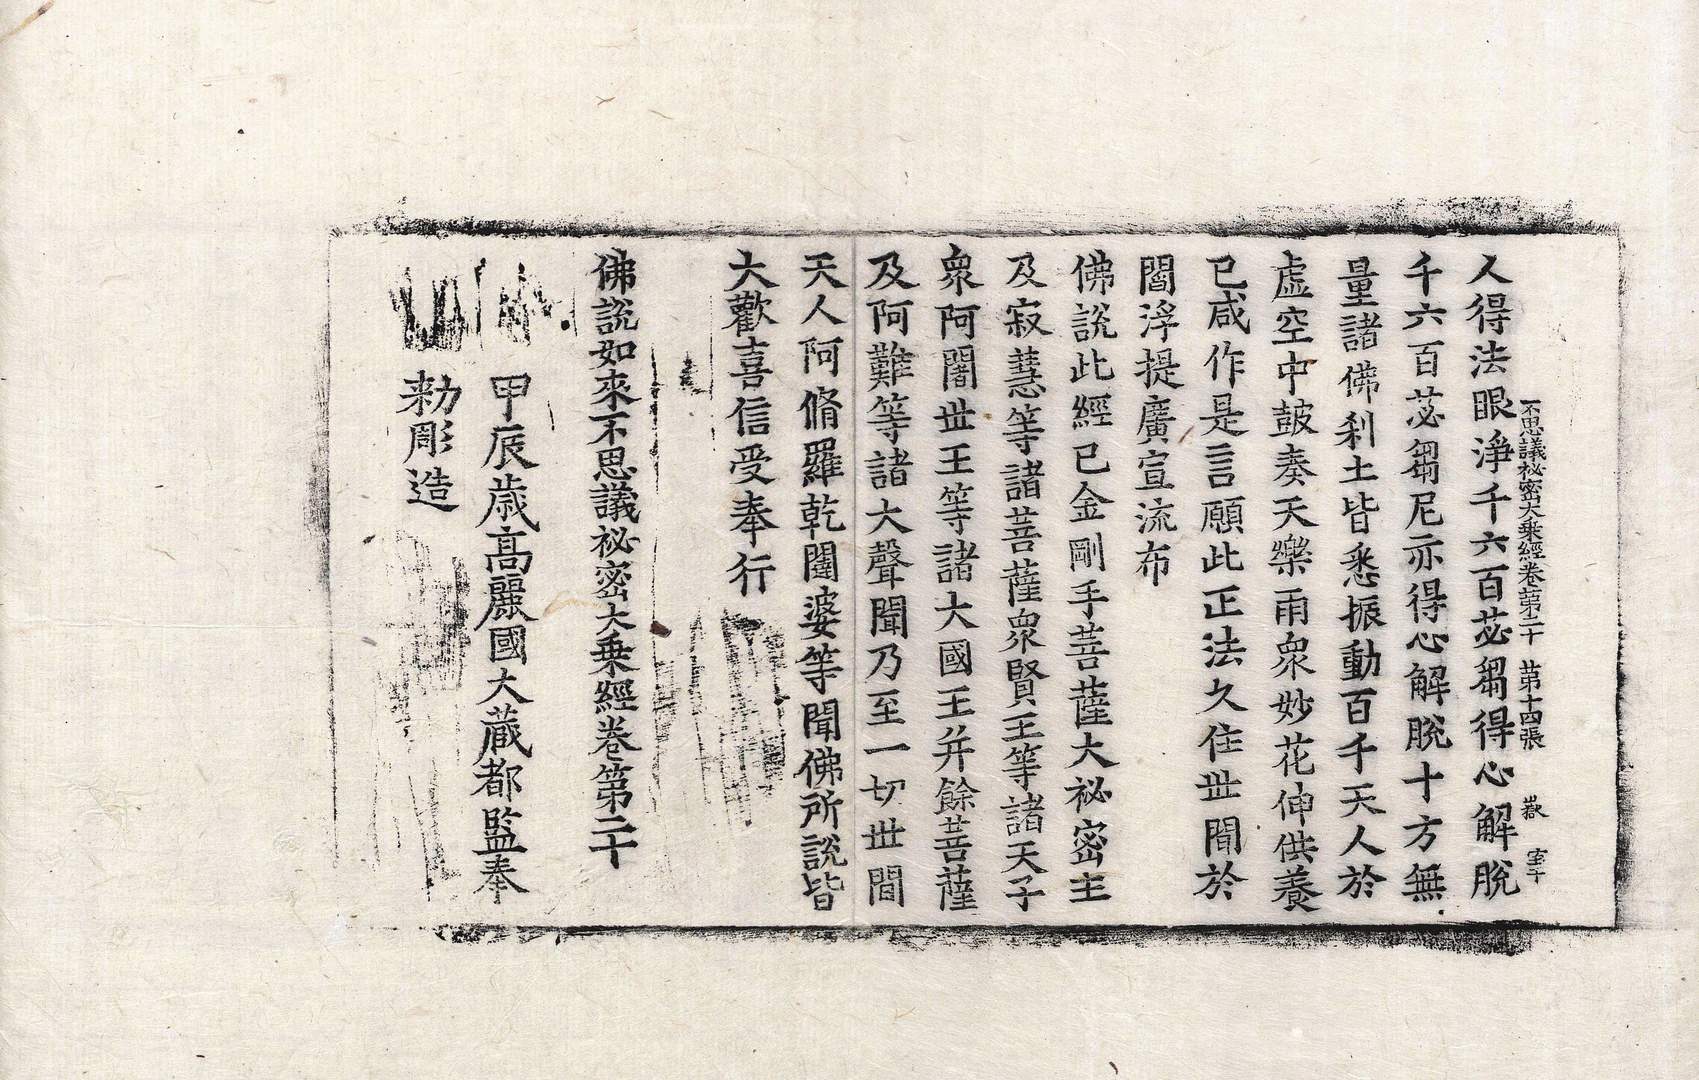 不思議祕密大乘經卷第二十　第十四張　嶽
人得法眼淨千六百苾芻得心解脫
千六百苾芻尼亦得心解脫十方無
量諸佛刹土皆悉振動百千天人於
虛空中鼓奏天樂雨衆妙花伸供養
已咸作是言願此正法久住世閒於
閻浮提廣宣流布
佛說此經已金剛手菩薩大祕密主
及寂慧等諸菩薩衆賢王等諸天子
衆阿闍世王等諸大國王并餘菩薩
及阿難等諸大聲聞乃至一切世閒
天人阿脩羅乾闥婆等聞佛所說皆
大歡喜信受奉行
佛說如來不思議祕密大乘經卷第二十
甲辰歲高麗國大藏都監奉
勑彫造